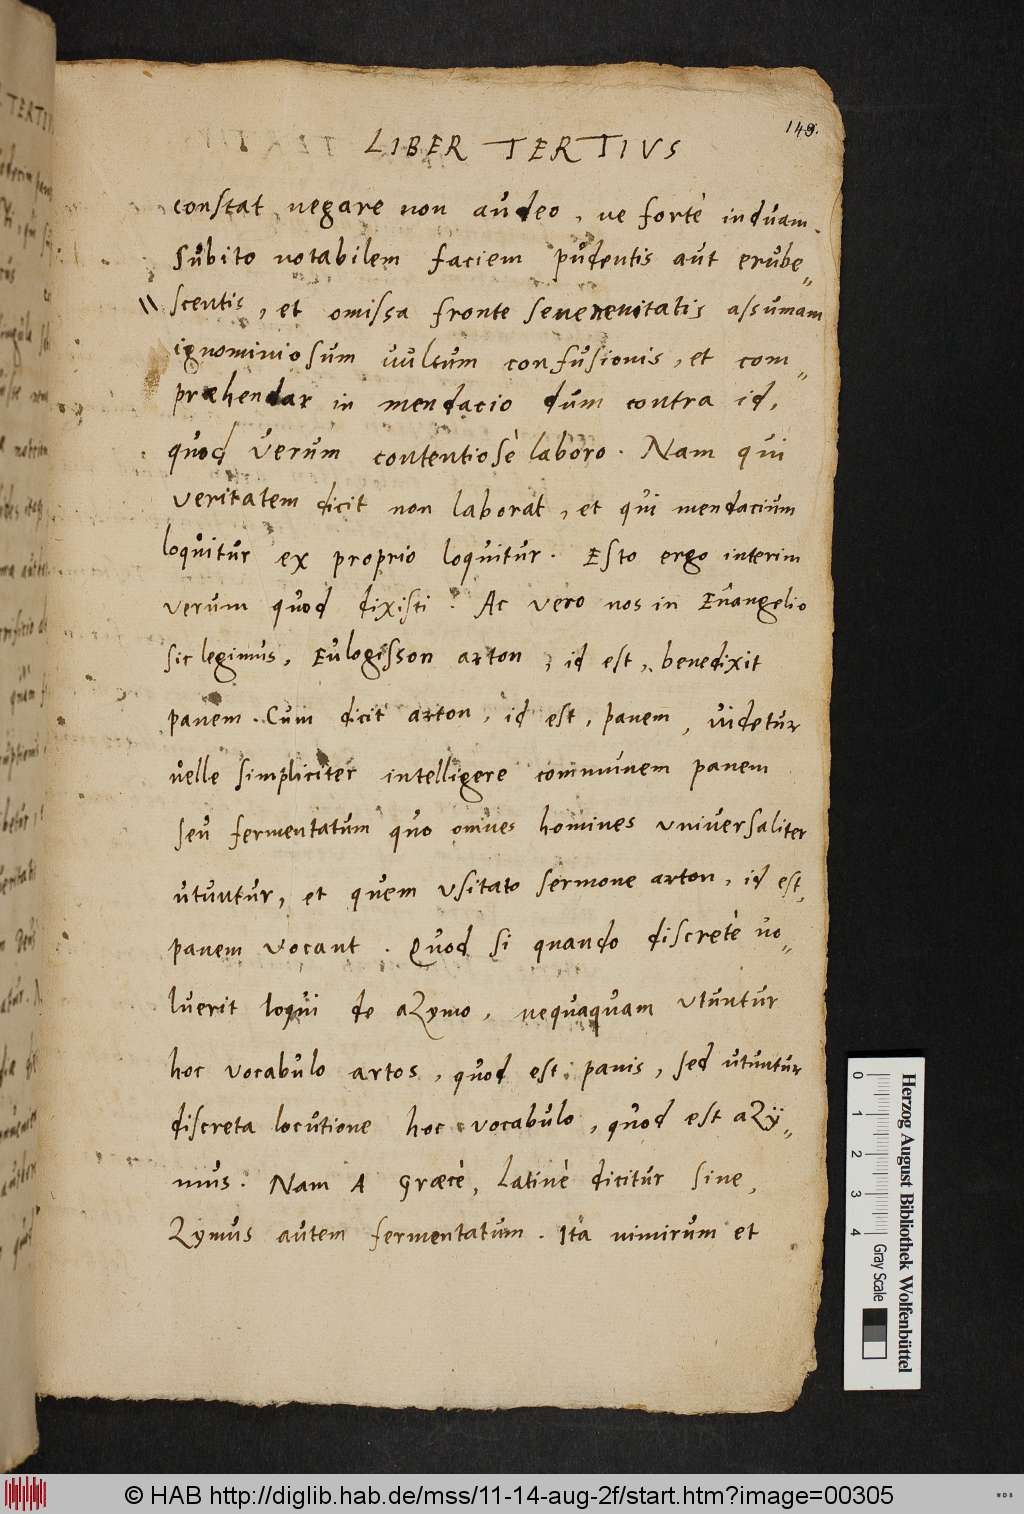 149.
LIBER TERTIVS
constat negare non audeo, ne fortè induam
subito notabilem faciem pudentis aut erube„
scentis, et omissa fronte severenitatis assumam
ignominiosum uultum confusionis, et com„
præhendar in mendacio dum contra id,
quod verum contentiosè laboro. Nam qui
veritatem dicit non laborat, et qui mendacium
loquitur ex proprio loquitur. Esto ergo interim
verum quod dixisti. Ac vero nos in Euangelio
sic legimus, Eulogisson arton, id est, benedixit
panem. Cum dicit arton, id est, panem, uidetur
uelle simpliciter intelligere communem panem
seu fermentatum quo omnes homines universaliter
utuntur, et quem usitato sermone arton, id est,
panem vocant. Quod si quando discretè uo„
luerit loqui de azymo, nequaquam utuntur
hoc vocabulo artos, quod est panis, sed utuntur
discreta locutione hoc vocabulo, quod est azÿ„
mus. Nam A Græcè, Latinè dicitur sine,
Zymus autem fermentatum. Ita nimirum et
Herzog August Bibliothek Wolfenbüttel
0 1 2 3 4 Gray Scale
© HAB http://diglib.hab.de/mss/11-14-aug-2f/start.htm?image=00305